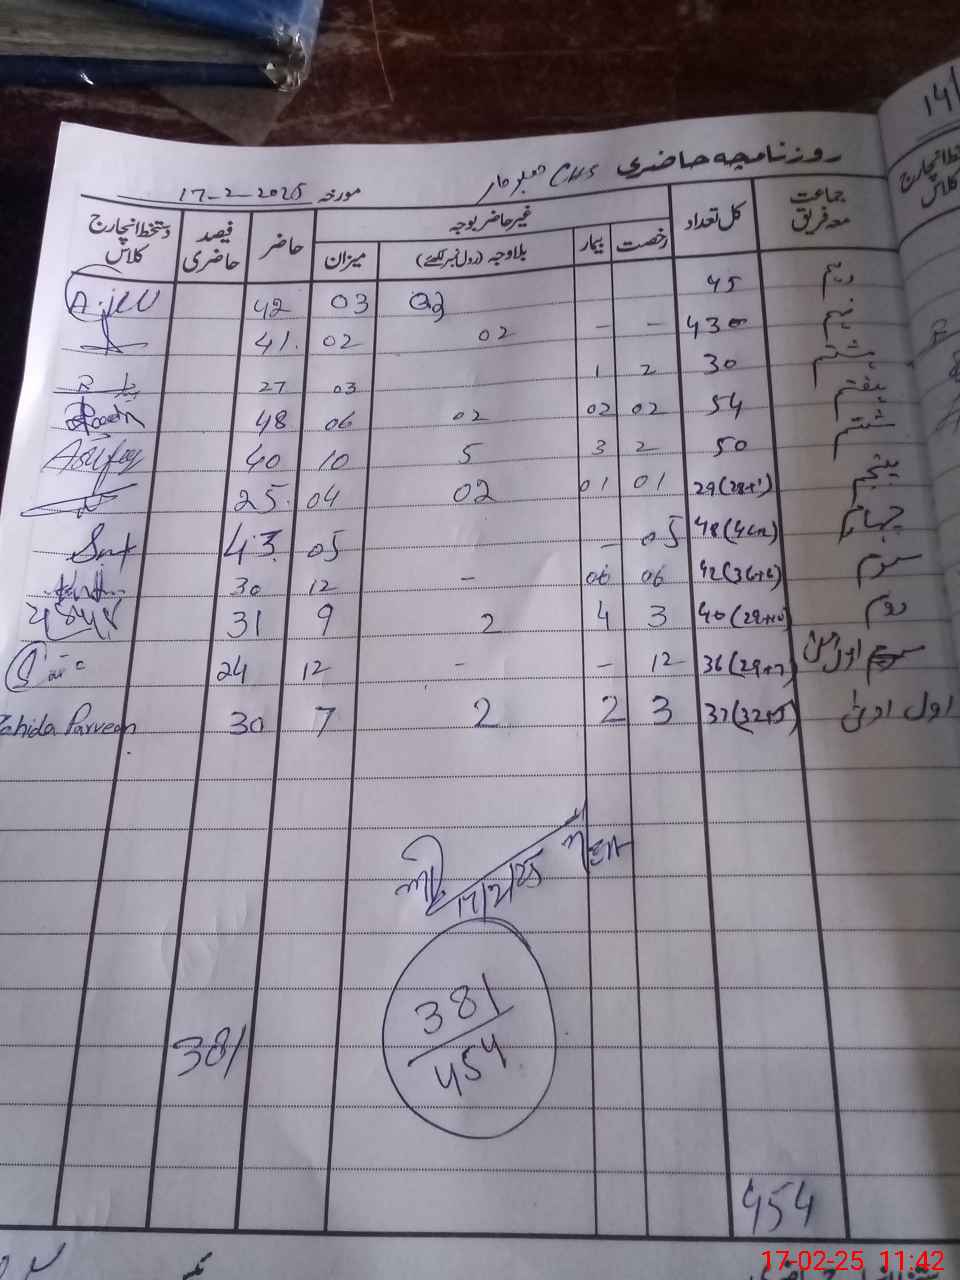 14/
روزنامچہ حاضری CHS
مورخہ 17-2-2025
جماعت معہ فریق کل تعداد غیر حاضر بوجہ حاضر فیصد حاضری دستخط انچارج کلاس
رخصت بیمار بلاوجہ (رول نمبر لکھئے) میزان
دہم 45 03 42
نہم 43 – – 02 02 41
ہشتم 30 2 1 03 27
ہفتم 54 02 02 02 06 48
ششم 50 2 3 5 10 40
پنجم 29(28+1) 01 01 02 04 25
چہارم 48 05 – 05 43
سوم 42(36+6) 06 06 – 12 30
دوم 40 3 4 2 9 31
اول اعلیٰ 36(29+7) 12 – – 12 24
اول ادنیٰ 37(32+5) 3 2 2 7 30 Zahida Parveen
17/2/25
381
454
381
454
17-02-25 11:42